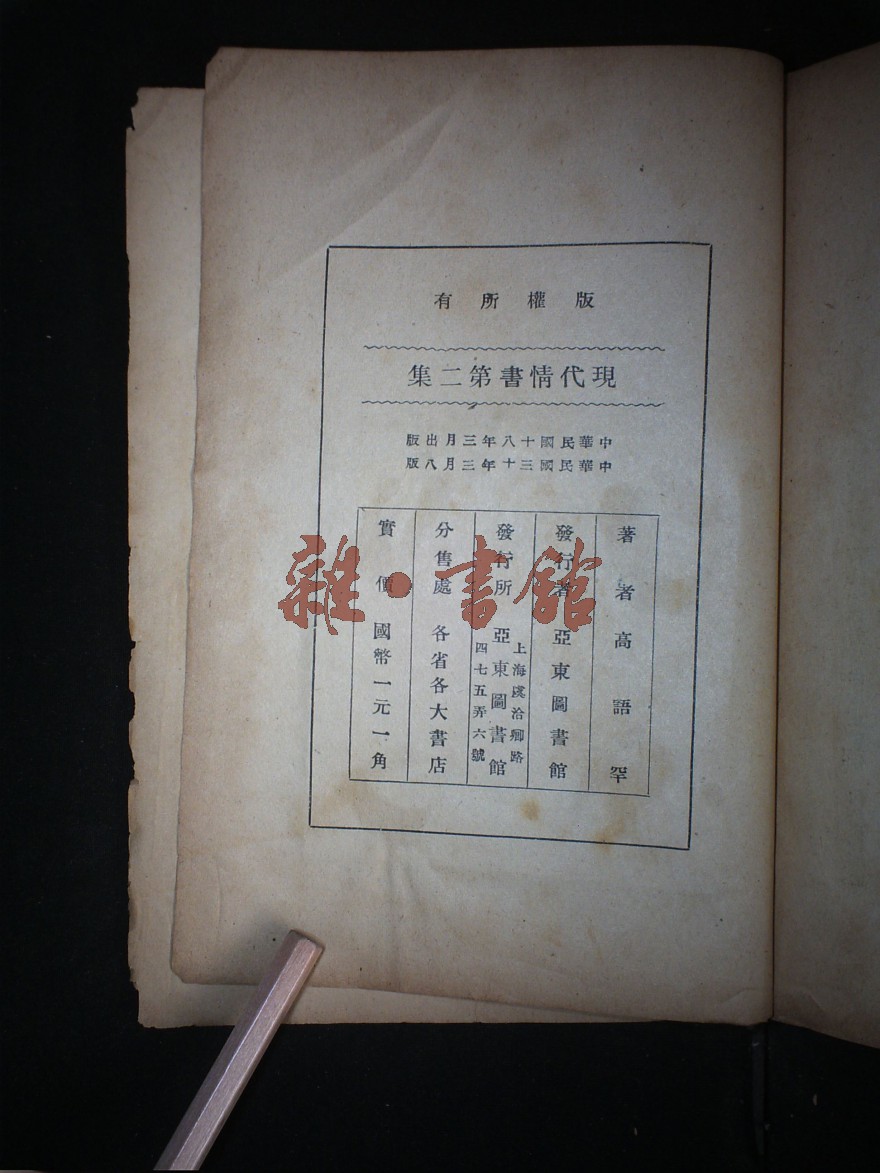 版權所有
現代情書第二集
中華民國十八年三月出版
中華民國三十年三月八版
著者 高語罕
發行者 亞東圖書館
發行所 亞東圖書館
上海虞洽卿路
四七五弄六號
分售處 各省各大書店
實價 國幣一元一角
雜·書館